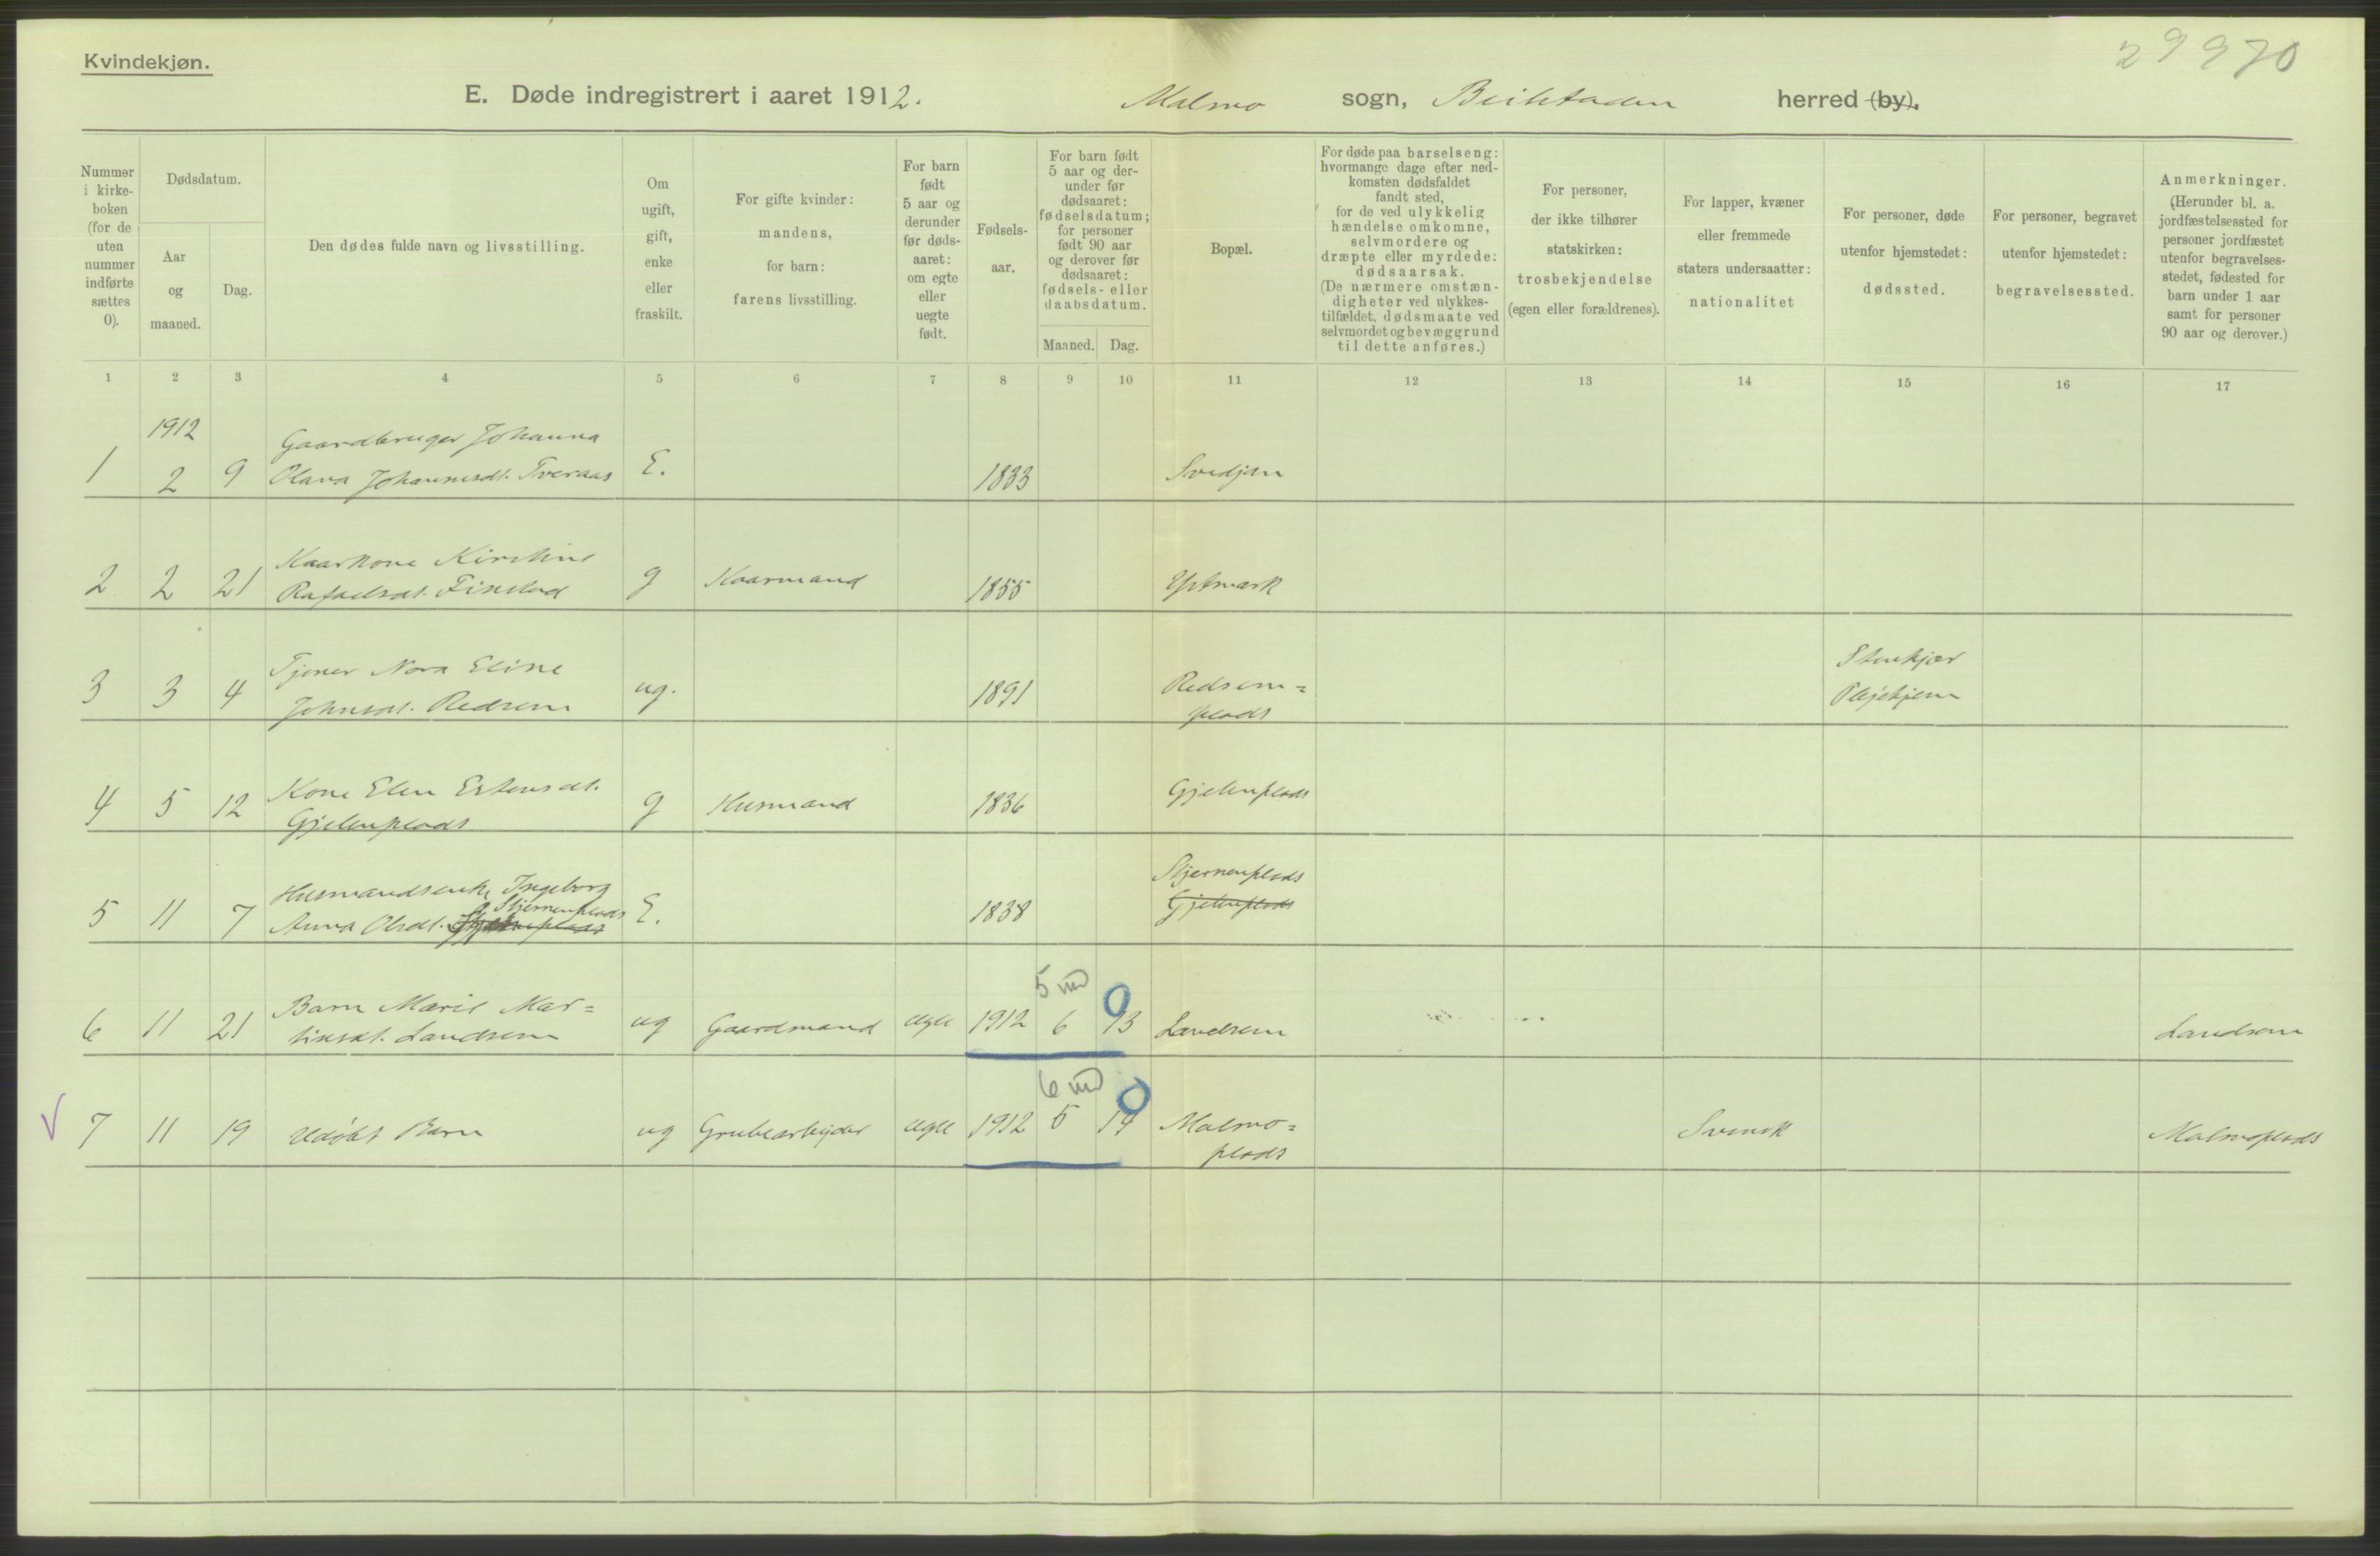 Kvindekjøn.
29970
E. Døde indregistrert i aaret 1912. Malmo sogn, Beitstaden herred (by).
Nummer i kirke-boken (for de uten nummer indførte sættes 0).
Dødsdatum.
Aar og maaned.
Dag.
Den dødes fulde navn og livsstilling.
Om ugift, gift, enke eller fraskilt.
For gifte kvinder: mandens, for barn: farens livsstilling.
For barn født 5 aar og derunder før døds-aaret: om egte eller uegte født.
Fødsels-aar.
For barn født 5 aar og der-under før dødsaaret: fødselsdatum; for personer født 90 aar og derover før dødsaaret: fødsels- eller daabsdatum.
Maaned. Dag.
Bopæl.
For døde paa barselseng: hvormange dage efter ned-komsten dødsfaldet fandt sted, for de ved ulykkelig hændelse omkomne, selvmordere og dræpte eller myrdede: dødsaarsak. (De nærmere omstæn-digheter ved ulykkes-tilfældet, dødsmaate ved selvmordet og bevæggrund til dette anføres.)
For personer, der ikke tilhører statskirken: trosbekjendelse (egen eller forældrenes).
For lapper, kvæner eller fremmede staters undersaatter: nationalitet
For personer, døde utenfor hjemstedet: dødssted.
For personer, begravet utenfor hjemstedet: begravelsessted.
Anmerkninger. (Herunder bl. a. jordfæstelsessted for personer jordfæstet utenfor begravelses-stedet, fødested for barn under 1 aar samt for personer 90 aar og derover.)
1 2 3 4 5 6 7 8 9 10 11 12 13 14 15 16 17
1912
Gaardbruger Johanna
1 2 9 Olava Johannesdt. Tveraas E. 1833 Svedjan
Kaarkone Kirstine
2 2 21 Rafaelsdt. Finstad g Kaarmand 1855 Ystmark
Tjener Nora Eline Stenkjær
3 3 4 Johnsdt. Redsem ug. 1891 Redsem= Pleiehjem
plads
Kone Elen Estensdt. Gjelenplads
4 5 12 Gjelenplads g Husmand 1836
Husmandsenke Ingeborg Stjernenplads
Stjernenplads
5 11 7 Anna Olsdt. E. 1838 Gjelenplads
5 md 0
Barn Marie Mar=
6 11 21 tinsdt. Landsem ug Gaardmand Egte 1912 6 13 Landsem Landsem
6 md 0
V 7 11 19 Udøbt Barn ug Grubearbeider Egte 1912 5 14 Malmo= Svensk Malmoplads
plads